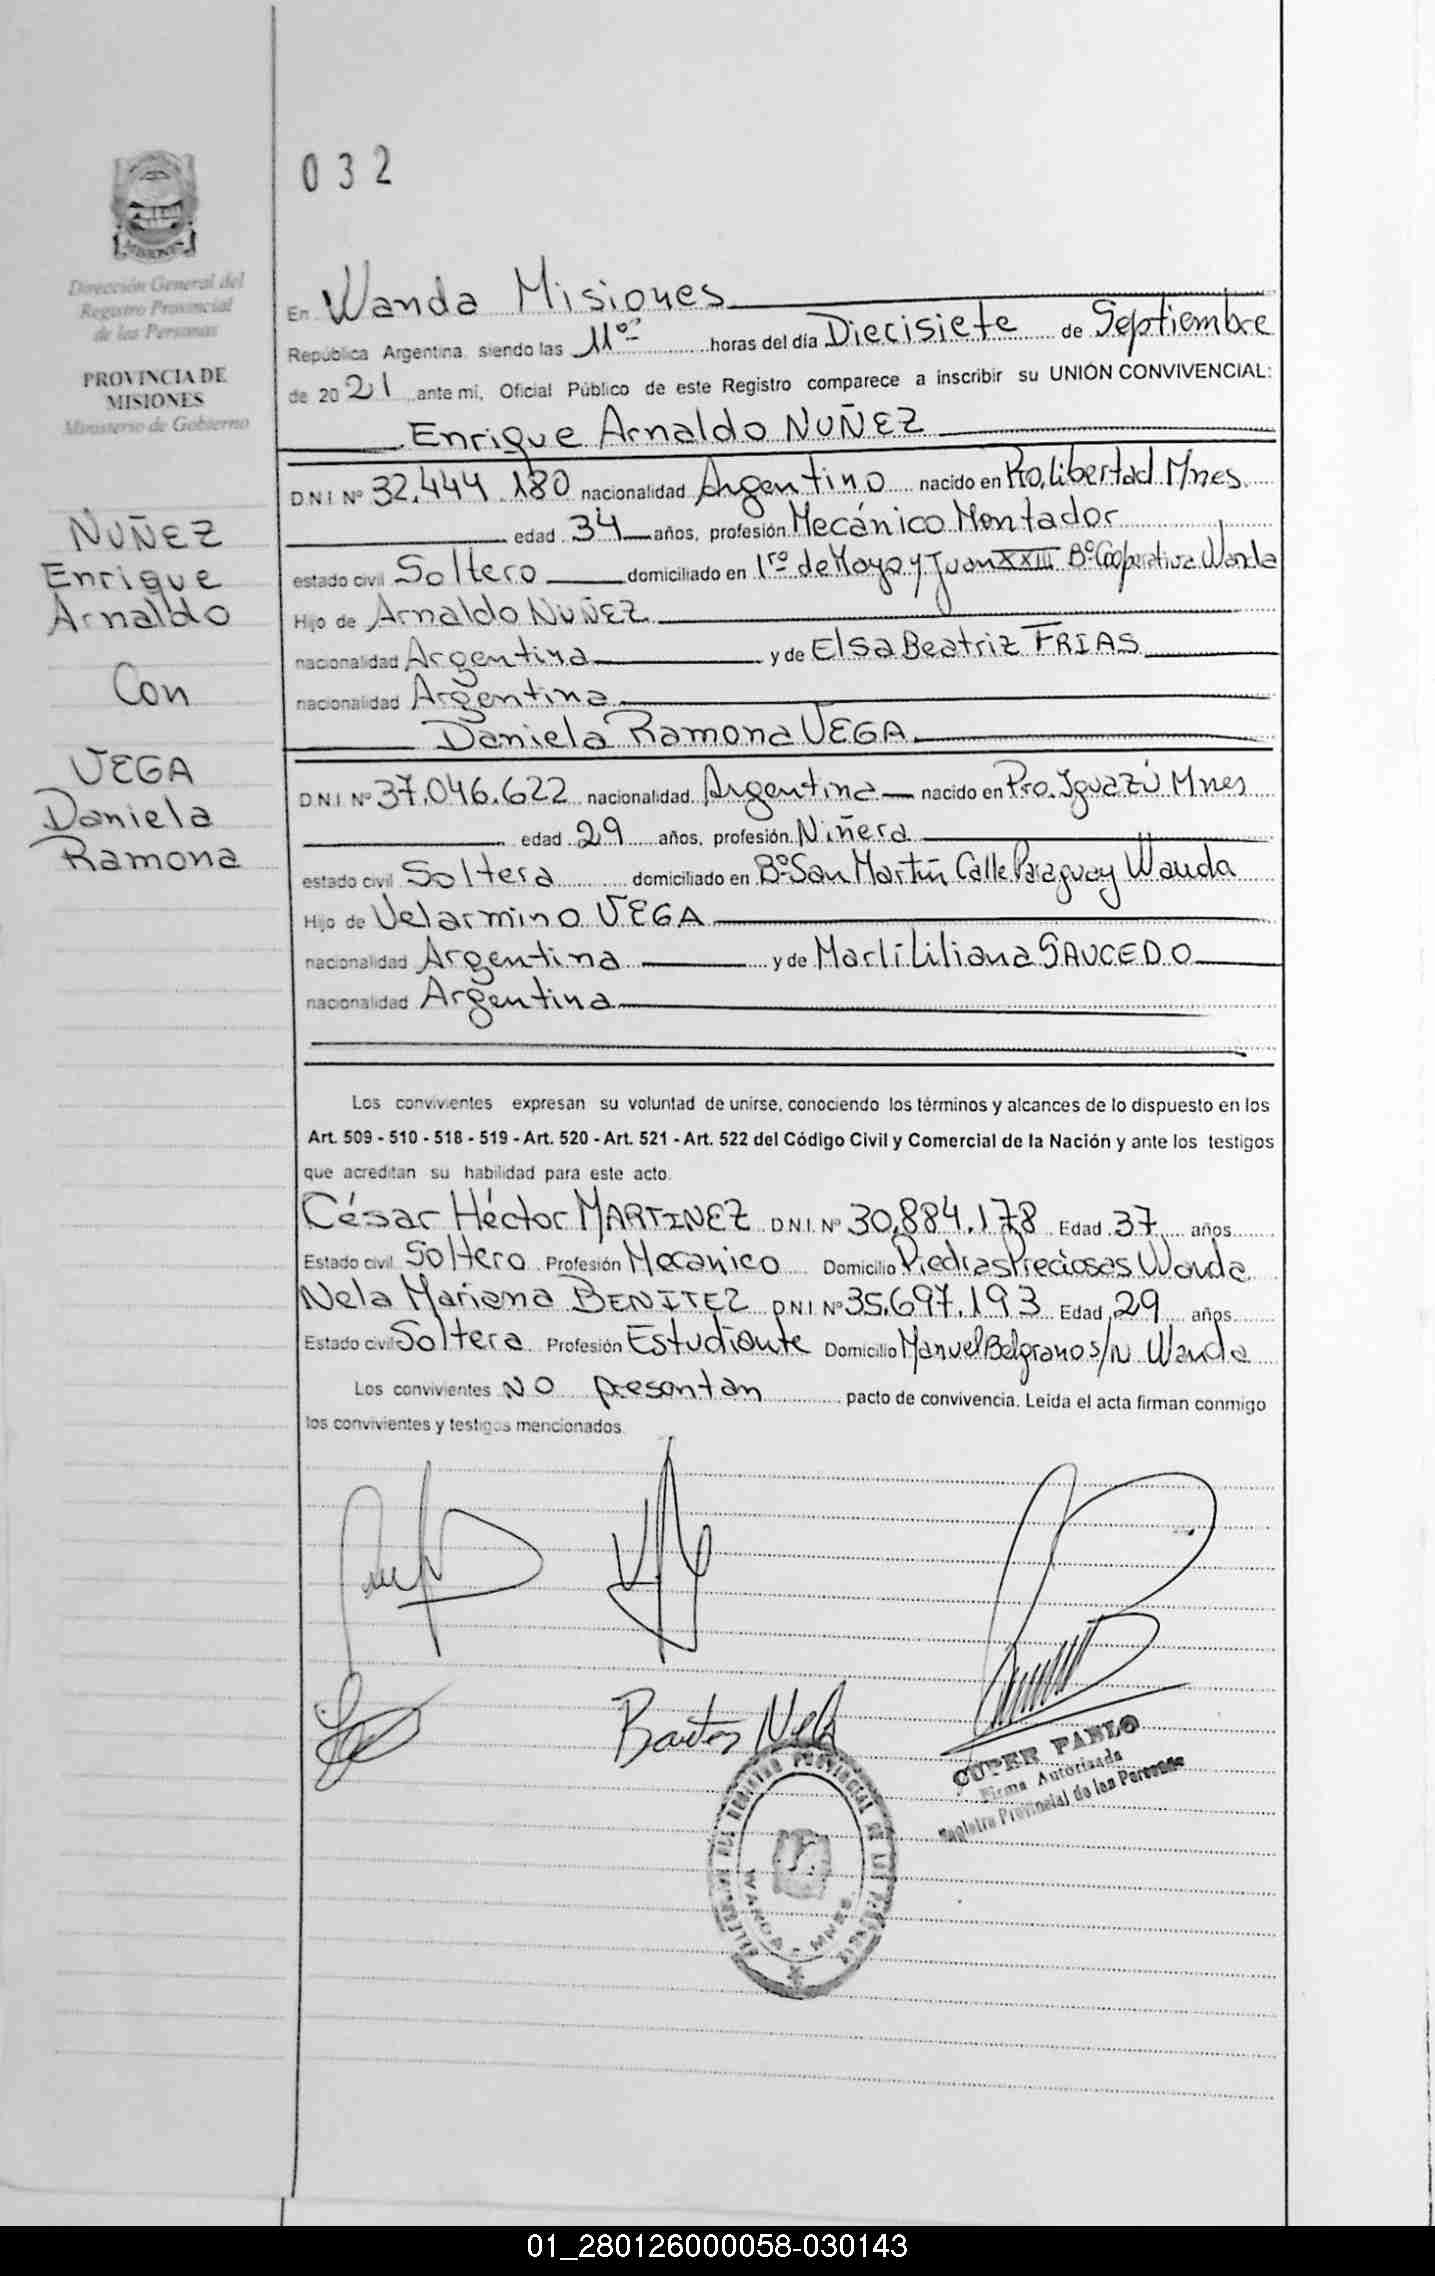 032
Dirección General del
Registro Provincial
de las Personas
PROVINCIA DE
MISIONES
Ministerio de Gobierno
NUÑEZ
Enrique
Arnaldo
Con
VEGA
Daniela
Ramona
En Wanda Misiones
República Argentina, siendo las 11º horas del día Diecisiete de Septiembre
de 2021 ante mi, Oficial Público de este Registro comparece a inscribir su UNIÓN CONVIVENCIAL:
Enrique Arnaldo NUÑEZ
D.N.I. Nº 32.444.180 nacionalidad Argentino nacido en Pto. Libertad Mnes.
edad 34 años, profesión Mecánico Montador
estado civil Soltero domiciliado en 1ro de Mayo y Juan XXIII Bº Cooperativa Wanda
Hijo de Arnaldo NUÑEZ
nacionalidad Argentina y de Elsa Beatriz FRIAS
nacionalidad Argentina
Daniela Ramona VEGA
D.N.I. Nº 37.046.622 nacionalidad Argentina nacido en Pto. Iguazú Mnes
edad 29 años, profesión Niñera
estado civil Soltera domiciliado en Bº San Martín Calle Paraguay Wanda
Hijo de Velarmino VEGA
nacionalidad Argentina y de Marlí Liliana SAUCEDO
nacionalidad Argentina
Los convivientes expresan su voluntad de unirse, conociendo los términos y alcances de lo dispuesto en los
Art. 509 - 510 - 518 - 519 - Art. 520 - Art. 521 - Art. 522 del Código Civil y Comercial de la Nación y ante los testigos
que acreditan su habilidad para este acto.
César Héctor MARTINEZ D.N.I. Nº 30.884.178 Edad 37 años
Estado civil Soltero Profesión Mecanico Domicilio Piedras Preciosas Wanda
Nela Mariana BENITEZ D.N.I. Nº 35.697.193 Edad 29 años
Estado civil Soltera Profesión Estudiante Domicilio Manuel Belgrano s/n Wanda
Los convivientes NO presentan pacto de convivencia. Leída el acta firman conmigo
los convivientes y testigos mencionados.
Nela
CUPER PABLO
Firma Autorizada
Registro Provincial de las Personas
REGISTRO PROVINCIAL DE LAS PERSONAS
WANDA - MNES.
01_280126000058-030143